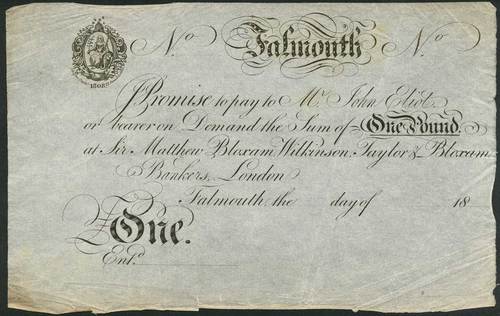 No. Falmouth No.
I Promise to pay to Mr. John Eliot
or bearer on Demand the Sum of One Pound.
at Sir Matthew Bloxam, Wilkinson, Taylor & Bloxam
Bankers, London
Falmouth, the day of 18
£ One.
Entd.